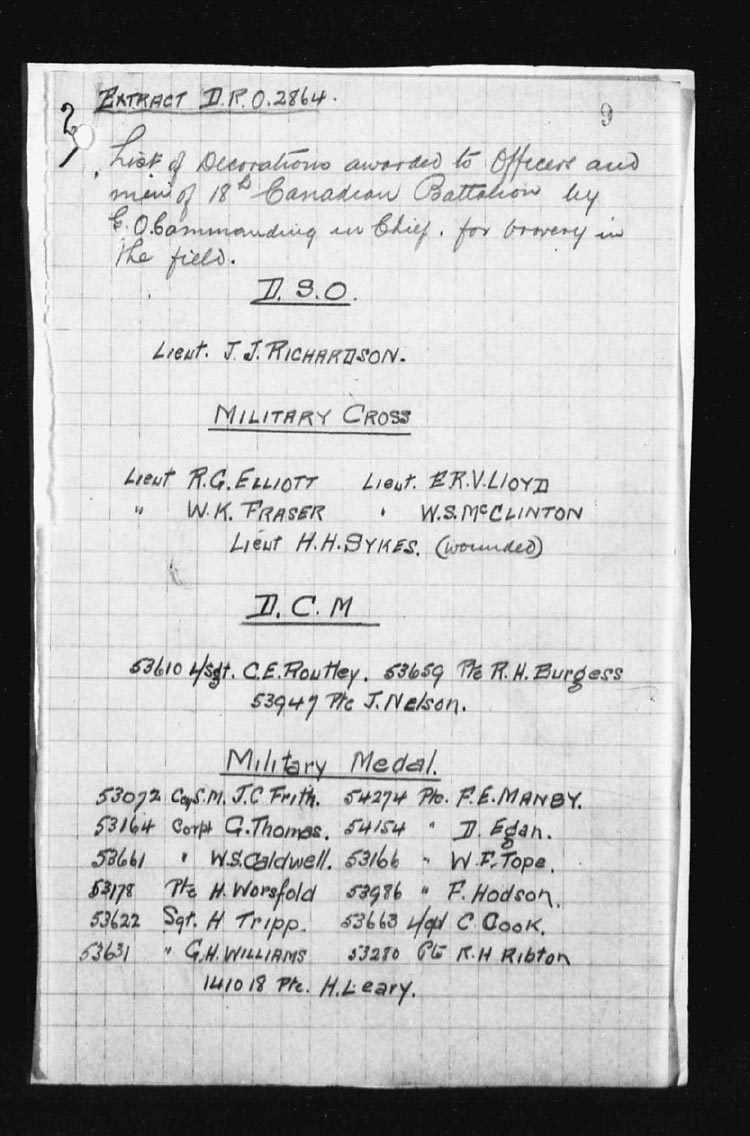 EXTRACT D.R.O. 2864.
9
2/
List of Decorations awarded to Officers and
men of 18th Canadian Battalion by
G.O. Commanding in Chief. for bravery in
the field.
D.S.O.
Lieut. J.J. RICHARDSON.
MILITARY CROSS
Lieut R.G. ELLIOTT Lieut. E.R.V. LLOYD
" W.K. FRASER " W.S. McCLINTON
Lieut H.H. SYKES. (wounded)
D.C.M
53610 L/Sgt. C.E. Routley. 53659 Pte R.H. Burgess
53947 Pte J. Nelson.
Military Medal.
53072 Coy S.M. J.C Frith. 54274 Pte. F.E. MANBY.
53164 Corpl G. Thomas. 54154 " D. Egan.
53661 " W.S. Caldwell. 53166 " W.F. Tope.
53178 Pte H. Worsfold 53986 " F. Hodson.
53622 Sgt. H Tripp. 53663 L/Cpl C. Cook.
53631 " G.H. WILLIAMS 53280 Pte R.H Ribton
141018 Pte. H. Leary.